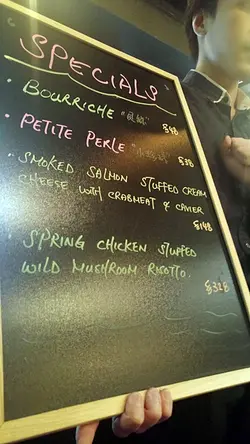 SPECIALS
• BOURRICHE
$48
• PETITE PERLE
$38
• SMOKED SALMON STUFFED CREAM
CHEESE WITH CRABMEAT & CAVIER
$148
• SPRING CHICKEN STUFFED
WILD MUSHROOM RISOTTO.
$328